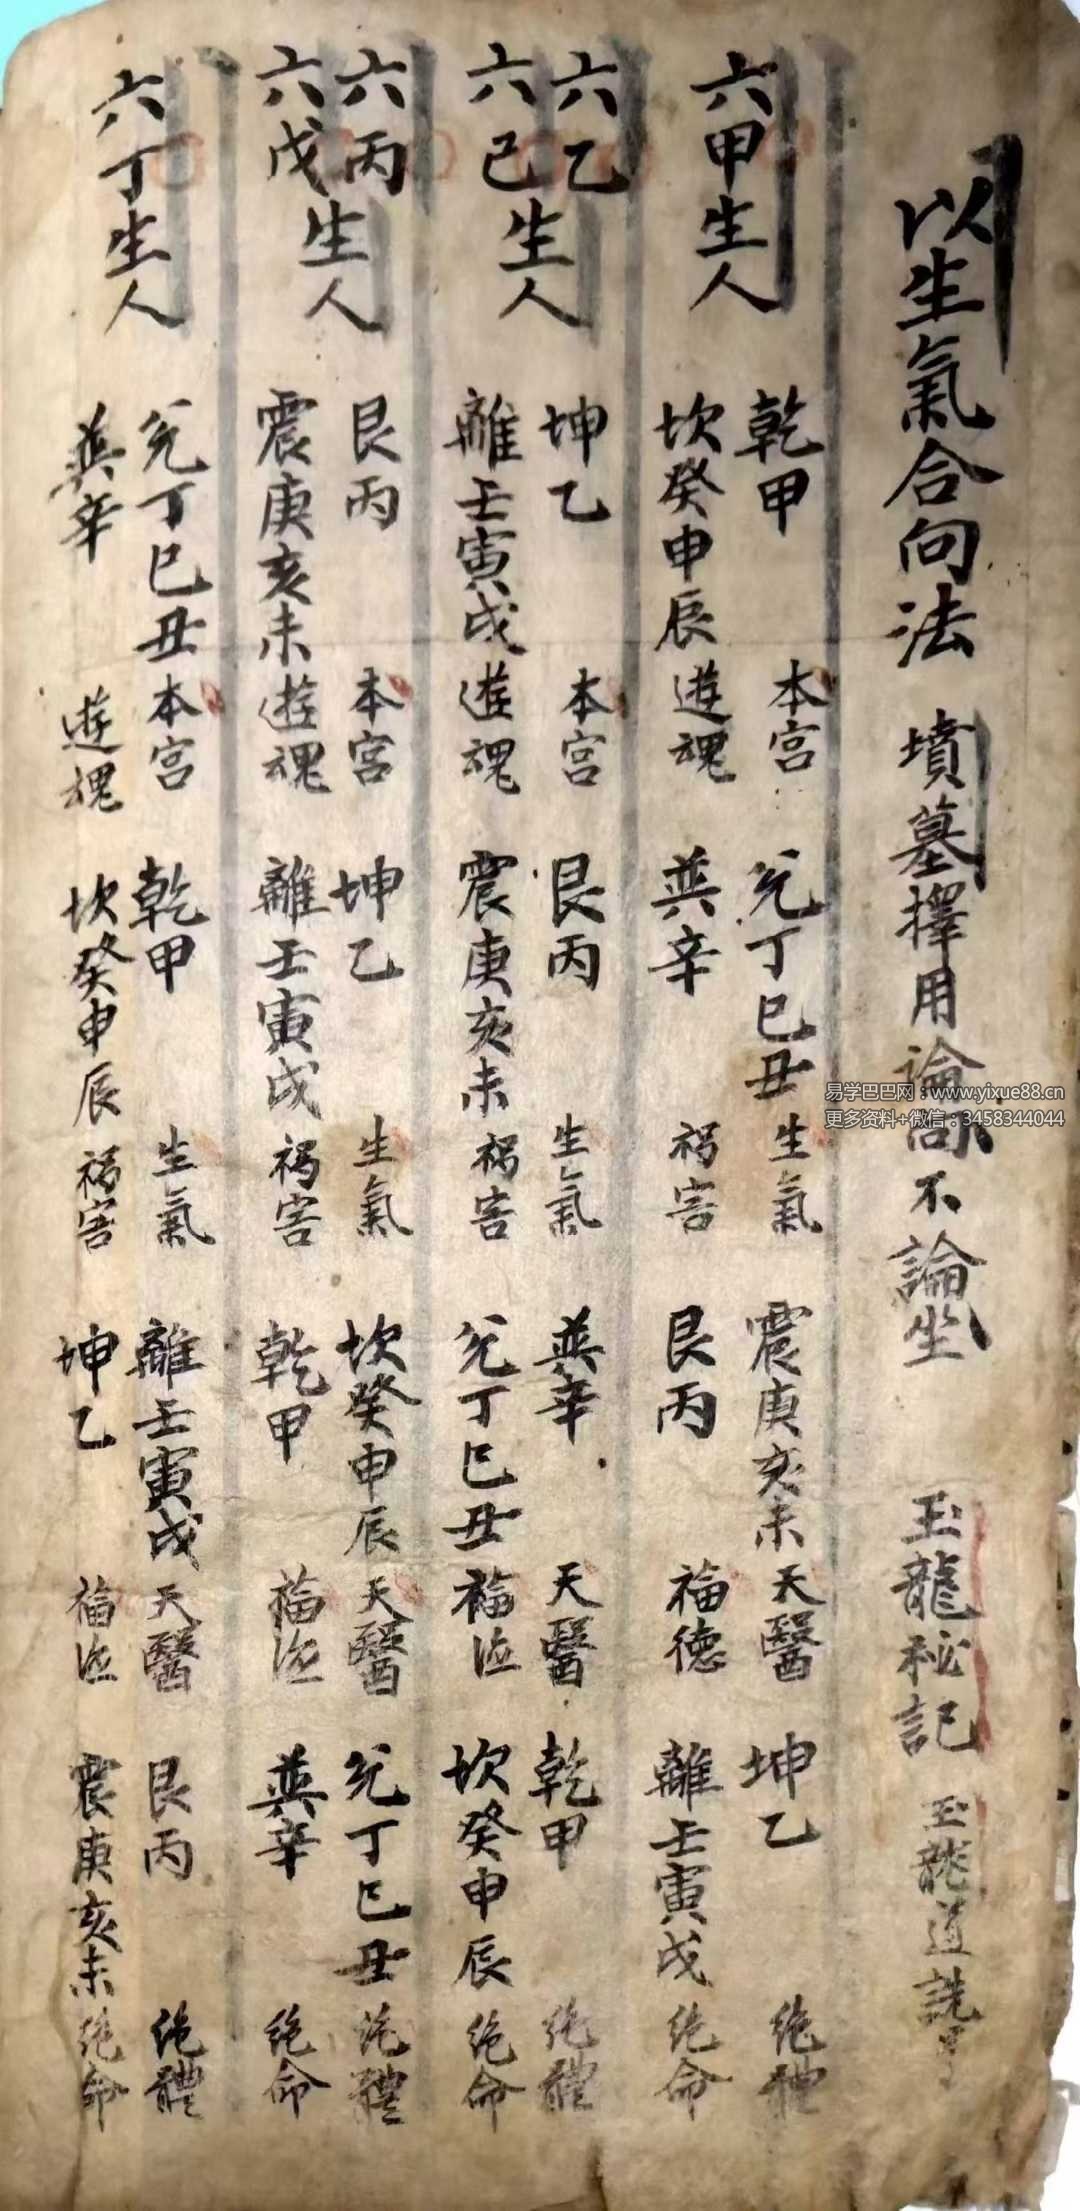 以生氣合向法 墳墓擇用論向不論坐 玉龍秘記 玉龍道
六甲生人
乾甲 本宮 兌丁巳丑 生氣 震庚亥未 天醫 坤乙 絶體
坎癸申辰 遊魂 巽辛 禍害 艮丙 福德 離壬寅戌 絶命
六乙
六己
生人
坤乙 本宮 艮丙 生氣 巽辛 天醫 乾甲 絶體
離壬寅戌 遊魂 震庚亥未 禍害 兌丁巳丑 福 坎癸申辰 絶命
六丙
六戊
生人
艮丙 本宮 坤乙 生氣 坎癸申辰 天醫 兌丁巳丑 絶體
震庚亥未 遊魂 離壬寅戌 禍害 乾甲 福 巽辛 絶命
六丁生人
兌丁巳丑 本宮 乾甲 生氣 離壬寅戌 天醫 艮丙 絶體
巽辛 遊魂 坎癸申辰 禍害 坤乙 福 震庚亥未 絶命
易学巴巴网：www.yixue88.cn
更多资料+微信：3458344044